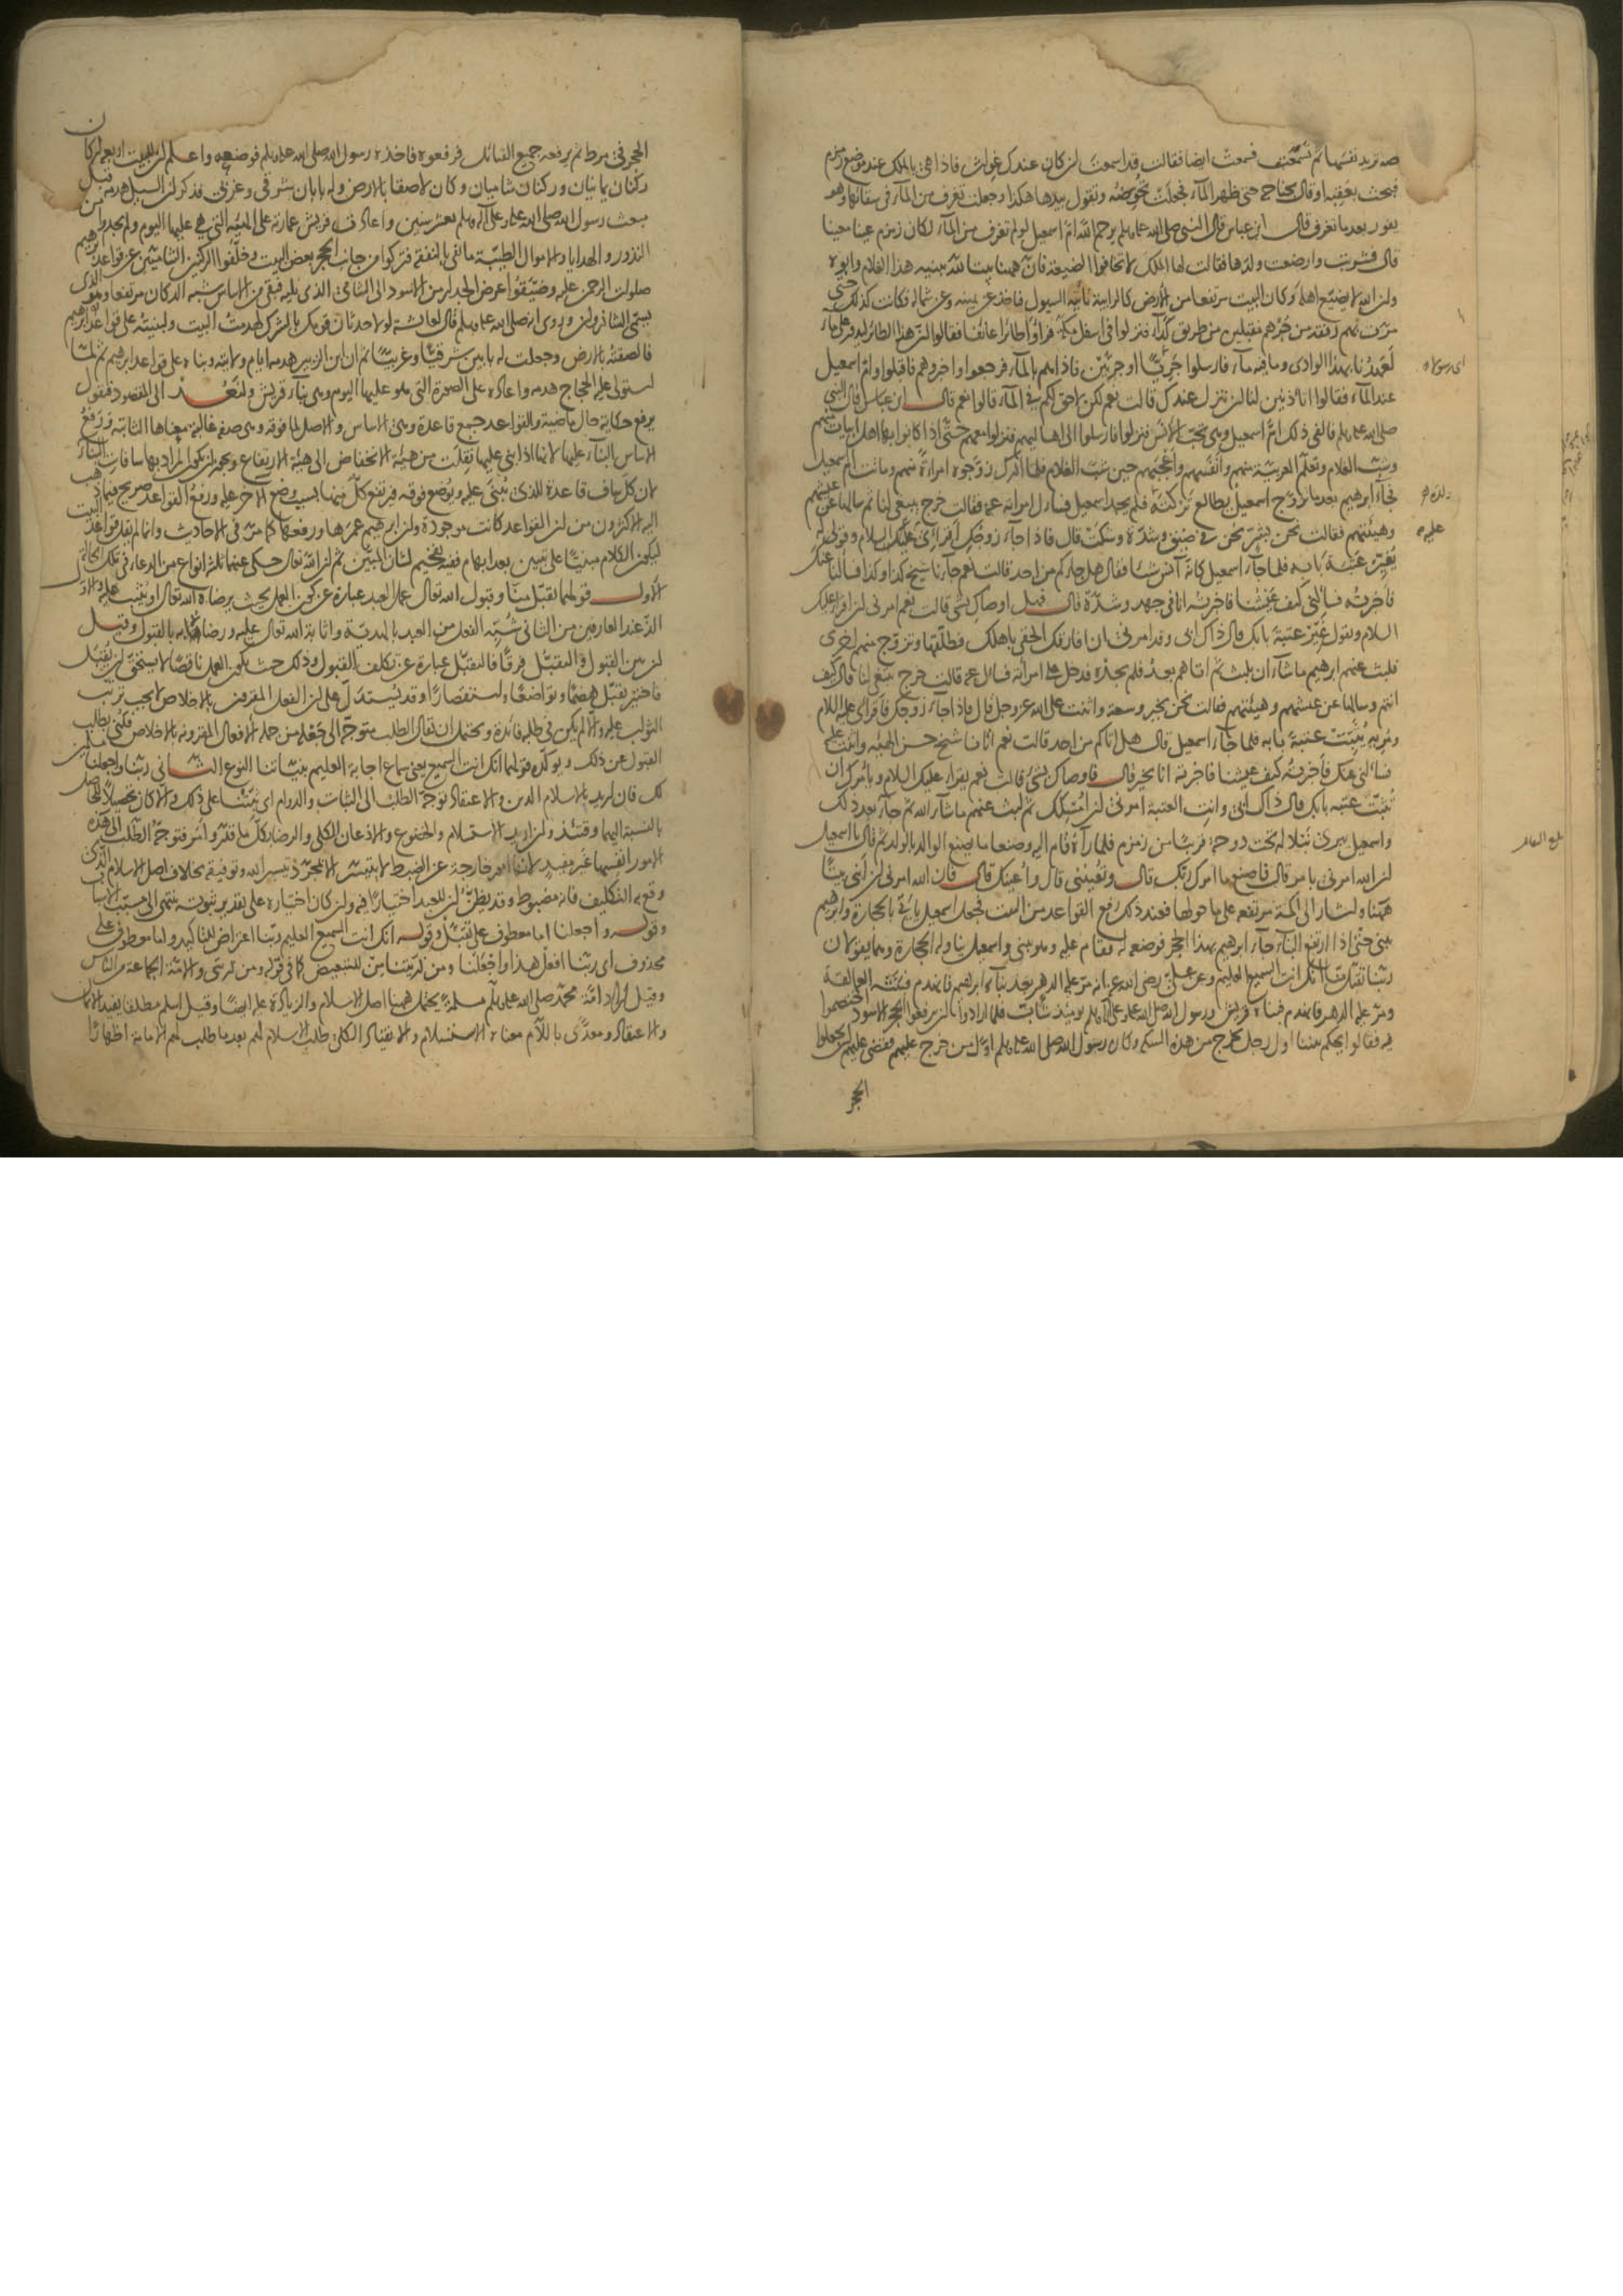 صه تريد نفسها ثم تسمعت فسمعت ايضا فقالت قد اسمعت ان كان عندك غواث فاذا هي بالملك عند موضع زمزم
فبحث بعقبه او قال بجناحه حتى ظهر الماء فجعلت تحوضه وتقول بيدها هكذا وجعلت تغرف من الماء في سقائها وهو
يفور بعد ما تغرف قال ابن عباس قال النبي صلى الله عليه وسلم يرحم الله ام اسمعيل لو لم تغرف من الماء لكان زمزم عينا معينا
قال فشربت وارضعت ولدها فقالت لها الملك لا تخافوا الضيعة فان ههنا بيتا لله يبنيه هذا الغلام وابوه
وان الله لا يضيع اهله وكان البيت مرتفعا من الارض كالرابية تاتيه السيول فتاخذ عن يمينه وعن شماله فكانت كذلك حتى
مرت بهم رفقة من جرهم مقبلين من طريق كداء فنزلوا في اسفل مكة فراوا طائرا عائفا فقالوا ان هذا الطائر ليدور على ماء
لعهدنا بهذا الوادي وما فيه ماء فارسلوا جريا او جريين فاذا هم بالماء فرجعوا واخبروهم فاقبلوا وام اسمعيل
عند الماء فقالوا اتاذنين لنا ان ننزل عندك قالت نعم لكن لا حق لكم في الماء قالوا نعم قال ابن عباس قال النبي
صلى الله عليه وسلم فالفى ذلك ام اسمعيل وهي تحب الانس فنزلوا فارسلوا الى اهاليهم فنزلوا معهم حتى اذا كانوا بها اهل ابيات منهم
وشب الغلام وتعلم العربية منهم وانفسهم واعجبهم حين شب الغلام فلما ادرك زوجوه امراة منهم وماتت ام اسمعيل
فجاء ابرهيم بعد ما تزوج اسمعيل يطالع تركته فلم يجد اسمعيل فسال امراته عنه فقالت خرج يبتغي لنا ثم سالها عن عيشهم
وهيئتهم فقالت نحن بشر نحن في ضيق وشدة وشكت قال فاذا جاء زوجك اقرئي عليه السلام وقولي له
يغير عتبة بابه فلما جاء اسمعيل كانه آنس شيئا فقال هل جاءكم من احد قالت نعم جاءنا شيخ كذا وكذا فسالنا عنك
فاخبرته فسالني كيف عيشنا فاخبرته انا في جهد وشدة قال فهل اوصاك بشئ قالت نعم امرني ان اقرا عليك
السلام ويقول غير عتبة بابك قال ذاك ابي وقد امرني ان افارقك الحقي باهلك فطلقها وتزوج منهم اخرى
فلبث عنهم ابرهيم ما شاء الله ان يلبث ثم اتاهم بعد فلم يجده فدخل على امراته فسال عنه قالت خرج يبتغي لنا قال كيف
انتم وسالها عن عيشهم وهيئتهم فقالت نحن بخير وسعة واثنت على الله عز وجل قال فاذا جاء زوجك فاقرئي عليه السلام
ومريه يثبت عتبة بابه فلما جاء اسمعيل قال هل اتاكم من احد قالت نعم اتانا شيخ حسن الهيئة واثنت عليه
فسالني عنك فاخبرته كيف عيشنا فاخبرته انا بخير قال فاوصاك بشئ قالت نعم يقرا عليك السلام ويامرك ان
تثبت عتبة بابك قال ذاك ابي وانت العتبة امرني ان امسكك ثم لبث عنهم ما شاء الله ثم جاء بعد ذلك
واسمعيل يبري نبلا له تحت دوحة قريبا من زمزم فلما رآه قام اليه وصنعا ما يصنع الوالد بالولد ثم قال يا اسمعيل
ان الله امرني بامر قال فاصنع ما امرك ربك قال وتعينني قال واعينك قال فان الله امرني ان ابني بيتا
ههنا واشار الى اكمة مرتفعة على ما حولها فعند ذلك رفع القواعد من البيت فجعل اسمعيل ياتي بالحجارة وابرهيم
يبني حتى اذا ارتفع البناء جاء ابرهيم بهذا الحجر فوضعه له فقام عليه وهو يبني واسمعيل يناوله الحجارة وهما يقولان
ربنا تقبل منا انك انت السميع العليم وعن علي رضي الله عنه انه مر عليه الدهر بعد بناء ابراهيم فانهدم فبنته العمالقة
ومر عليه الدهر فانهدم فبناه قريش ورسول الله صلى الله عليه وعلى آله وسلم يومئذ شاب فلما ارادوا ان يرفعوا الحجر الاسود اختصموا
فيه فقالوا يحكم بيننا اول رجل يخرج من هذه السكة وكان رسول الله صلى الله عليه وسلم اول من خرج عليهم فقضى عليهم ان يجعلوا
الحجر
اي رسولا
عليه
الحجر في مرط ثم يرفعه جميع القبائل فرفعوه فاخذه رسول الله صلى الله عليه وسلم فوضعه واعلم ان للبيت اربعة اركان
ركنان يمانيان وركنان شاميان وكان لاصقا بالارض وله بابان شرقي وغربي فذكر ان السيل هدمه قبل
مبعث رسول الله صلى الله عليه وعلى آله وسلم بعشر سنين واعادت قريش عمارته على الهيئة التي هي عليها اليوم ولم يجدوا من
النذور والهدايا والاموال الطيبة ما يفي بالنفقة فتركوا من جانب الحجر بعض البيت وخلفوا الركنين الشاميين عن قواعد ابرهيم
صلوات الرحمن عليه وضيقوا عرض الجدار من الاسود الى الشامي الذي يليه فبقي من الاساس شبه الدكان مرتفعا وهو الذي
يسمى الشاذروان وروي انه صلى الله عليه وسلم قال لعائشة لولا حدثان قومك بالشرك لهدمت البيت ولبنيته على قواعد ابرهيم
فالصقته بالارض وجعلت له بابين شرقيا وغربيا ثم ان ابن الزبير هدمه ايام ولايته وبناه على قواعد ابرهيم ثم لما
استولى عليه الحجاج هدمه واعاده على الصورة التي هو عليها اليوم وهي بناء قريش ولنعد الى المقصود فنقول
يرفع حكاية حال ماضية والقواعد جمع قاعدة وهي الاساس والاصل لما فوقه وهي صفة غالبة معناها الثابتة ورفع
الاساس البناء عليها لانها اذا بني عليها نقلت من هيئة الانخفاض الى هيئة الارتفاع ويجوز ان يكون المراد بها سافات البناء
لان كل ساف قاعدة للذي يبنى عليه ويوضع فوقه فيرتفع كل منها بسبب وضع الآخر عليه ورفع القواعد صريح فيما ذهب
اليه الاكثرون من ان القواعد كانت موجودة وان ابرهيم عمرها ورفعها كما مر في الاحاديث وانما لم يقل قواعد البيت
ليكون الكلام مبنيا على تبيين بعد ابهام ففيه تفخيم لشان المبين ثم ان الله تعالى حكى عنهما ثلاثة انواع من الدعاء في تلك الحالة
الاول قولهما تقبل منا وقبول الله تعالى عمل العبد عبارة عن كون العمل بحيث يرضاه الله تعالى او يثيب عليه والاول
الذ عند العارفين من الثاني شبه الفعل من العبد بالهدية واثابة الله تعالى عليه ورضاه به بالقبول وقيل
ان بين القبول والتقبل فرقا فالتقبل عبارة عن تكلف القبول وذلك حيث يكون العمل ناقصا لا يستحق ان يقبل
فاختير تقبل هضما وتواضعا واستقصارا وقد يستدل على ان الفعل المقرون بالاخلاص لا يجب ترتب
الثواب عليه والا لم يكن في طلبه فائدة ويحتمل ان يقال الطلب متوجه الى جعله من جملة الافعال المقرونة بالاخلاص فكنى بطلب
القبول عن ذلك ويؤكده قولهما انك انت السميع يعني سماع اجابة العليم بنياتنا النوع الثاني ربنا واجعلنا مسلمين
لك فان اريد بالاسلام الدين والاعتقاد توجه الطلب الى الثبات والدوام اي ثبتنا على ذلك والا كان تحصيلا للحاصل
بالنسبة اليهما وقتئذ وان اريد الاستسلام والخضوع والاذعان الكلي والرضا بكل ما قدر وامر فتوجه الطلب الى هذه
الامور انفسها غير بعيد لانها امور خارجة عن الضبط لا يتيسر الا بمجرد تيسير الله وتوفيقه بخلاف اصل الاسلام الذي
وقع به التكليف فانه مضبوط وقد يظن ان للعبد اختيارا فيه وان كان اختياره على تقدير ثبوته ينتهي الى مسبب الاسباب
وقوله واجعلنا اما معطوف على تقبل وقوله انك انت السميع العليم ربنا اعتراض للتاكيد واما معطوف على
محذوف اي ربنا افعل هذا واجعلنا ومن ذريتنا من للتبعيض كما في قوله ومن ذريتي والامة الجماعة من الناس
وقيل اراد امة محمد صلى الله عليه وسلم مسلمة يحتمل ههنا اصل الاسلام والزيادة عليه ايضا وقيل اسلم مطلقا يفيد الايمان
والاعتقاد ومعدى باللام معناه الاستسلام والانقياد الكلي طلب الاسلام لهم بعد ما طلب لهم الامامة اظهارا